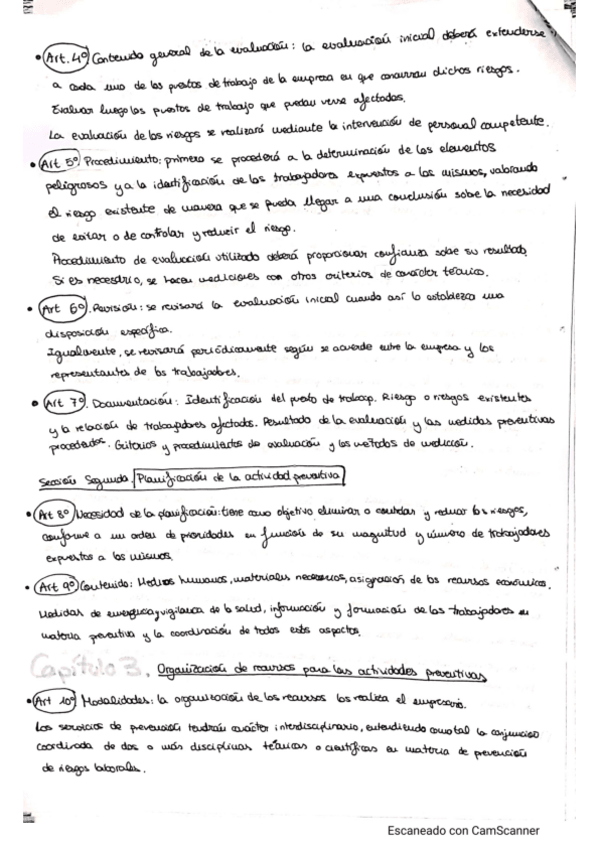 • Art. 4º Contenido general de la evaluación: la evaluación inicial deberá extenderse
a cada uno de los puestos de trabajo de la empresa en que concurran dichos riesgos.
Evaluar luego los puestos de trabajo que puedan verse afectados.
La evaluación de los riesgos se realizará mediante la intervención de personal competente.
• Art 5º Procedimiento: primero se procederá a la determinación de los elementos
peligrosos y a la identificación de los trabajadores expuestos a los mismos, valorando
el riesgo existente de manera que se pueda llegar a una conclusión sobre la necesidad
de evitar o de controlar y reducir el riesgo.
Procedimiento de evaluación utilizado deberá proporcionar confianza sobe su resultado.
Si es necesario, se hacen mediciones con otros criterios de carácter técnico.
• Art 6º. Revisión: se revisará la evaluación inicial cuando así lo establezca una
disposición específica.
Igualmente, se revisará periódicamente según se acuerde entre la empresa y los
representantes de los trabajadores.
• Art 7º. Documentación: Identificación del puesto de trabajo. Riesgo o riesgos existentes
y la relación de trabajadores afectados. Resultado de la evaluación y las medidas preventivas
procedentes. Criterios y procedimientos de evaluación y los métodos de medición.
Sección Segunda Planificación de la actividad preventiva
• Art 8º Necesidad de la planificación: tiene como objetivo eliminar o controlar y reducir los riesgos,
conforme a un orden de prioridades en función de su magnitud y número de trabajadores
expuestos a los mismos.
• Art 9º Contenido: Medios humanos, materiales necesarios, asignación de los recursos económicos.
Medidas de emergencia y vigilancia de la salud, información y formación de los trabajadores en
materia preventiva y la coordinación de todos estos aspectos.
Capítulo 3. Organización de recursos para las actividades preventivas
• Art 10º Modalidades: la organización de los recursos los realiza el empresario.
Los servicios de prevención tendrán carácter interdisciplinario, entendiendo como tal la conjunción
coordinada de dos o más disciplinas técnicas o científicas en materia de prevención
de riesgos laborales.
Escaneado con CamScanner